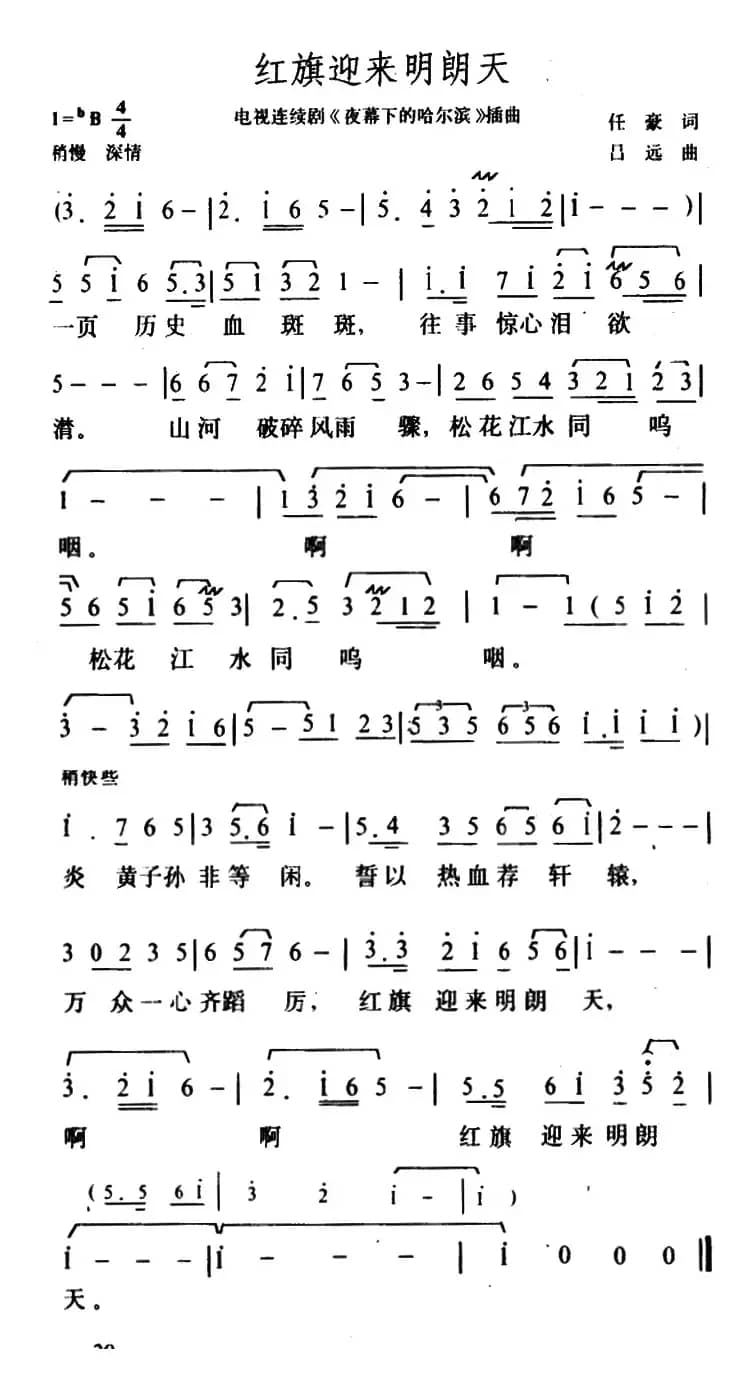 红旗迎来明朗天
1=ᵇB 4/4
电视连续剧《夜幕下的哈尔滨》插曲
任豪词
稍慢 深情
吕远曲
(3. 2 1 6 - | 2. 1 6 5 - | 5. 4 3 2 1 2 | 1 - - - ) |
5 5 1 6 5.3 | 5 1 3 2 1 - | 1.1 7 1 2 1 6 5 6 |
一页 历史 血斑斑, 往事惊心泪欲
5 - - - | 6 6 7 2 1 | 7 6 5 3 - | 2 6 5 4 3 2 1 2 3 |
潸。 山河 破碎风雨 骤, 松花江水同 呜
1 - - - | 1 3 2 1 6 - | 6 7 2 1 6 5 - |
咽。 啊 啊
5 6 5 1 6 5 3 | 2.5 3 2 1 2 | 1 - 1 ( 5 1 2 |
松花 江 水同 呜 咽。
3 - 3 2 1 6 | 5 - 5 1 2 3 | 5 3 5 6 5 6 1.1 1 1 ) |
稍快些
1 . 7 6 5 | 3 5.6 1 - | 5.4 3 5 6 5 6 1 | 2 - - - |
炎 黄子孙 非等 闲。 誓以 热血荐 轩 辕,
3 0 2 3 5 | 6 5 7 6 - | 3.3 2 1 6 5 6 | 1 - - - |
万 众一心 齐蹈 厉, 红旗 迎来明朗 天,
3. 2 1 6 - | 2. 1 6 5 - | 5.5 6 1 3 5 2 |
啊 啊 红旗 迎来明朗
( 5.5 6 1 | 3 2 1 - | 1 )
1 - - - | 1 - - - | 1 0 0 0 ‖
天。